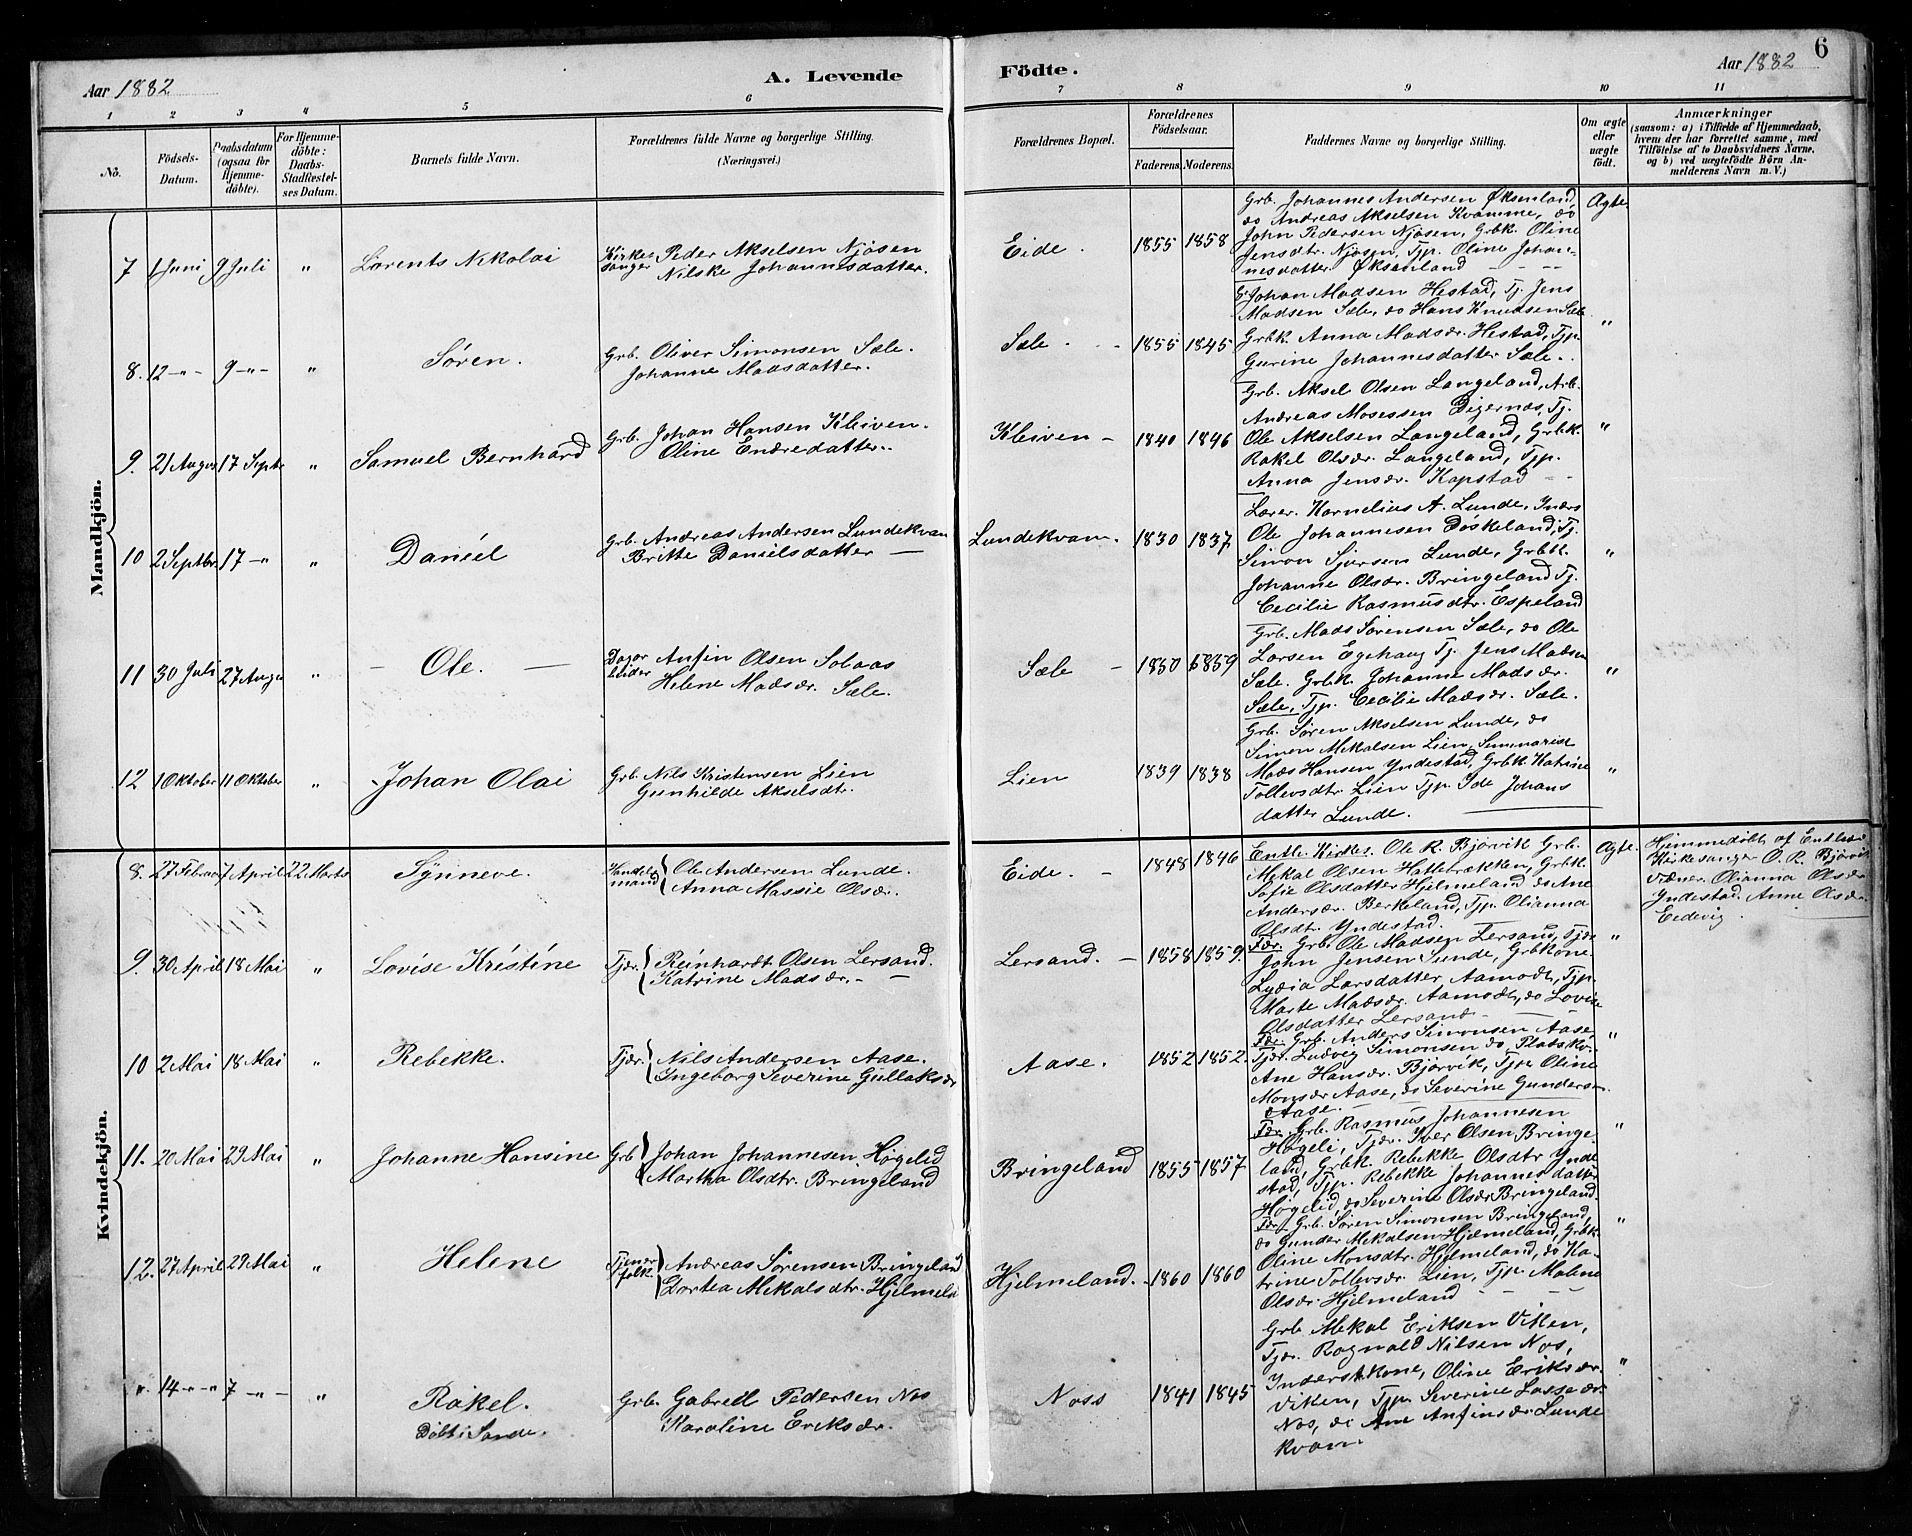 Aar 1882
A. Levende
Födte.
Aar 1882
6
1 2 3 4 5 6 7 8 9 10 11
No.
Födsels-
Datum.
Daabsdatum
(ogsaa for
Hjemme-
döbte).
For Hjemme-
döbte:
Daabs-
Stadfæstel-
ses Datum.
Barnets fulde Navn.
Forældrenes fulde Navne og borgerlige Stilling.
(Næringsvei.)
Forældrenes Bopæl.
Forældrenes
Födselsaar.
Faderens. Moderens.
Faddernes Navne og borgerlige Stilling.
Om ægte
eller
uægte
födt.
Anmærkninger
(saasom: a) i Tilfælde af Hjemmedaab,
hvem der har forrettet samme, med
Tilföielse af to Daabsvidners Navne,
og b) ved uægtefödte Börn An-
melderens Navn m. V.)
Mandkjön.
7 1 Juni 9 Juli " Lorents Nikolai
Kirke-
sanger
Peder Akselsen Njøsen
Nilske Johannesdatter.
Eide. 1855 1858
Grb. Johannes Andersen Øksenland,
do Andreas Akselsen Kvamme, do
John Pedersen Njøsen, Grbk. Oline
Jensdtr. Njøsen, Tjp. Oline Johan-
nesdatter Øksenland
Ægte
8. 12 -"- 9 -"- " Søren.
Grb. Oliver Simonsen Sæle.
Johanne Madsdatter.
Sæle. 1855 1845
Johan Madsen Hestad, Tj. Jens
Madsen Sæle, do Hans Knudsen Sæle
Grbk. Anna Madsdr. Hestad, Tjp.
Gurine Johannesdatter Sæle.
"
9. 21 August 17 Septr " Samuel Bernhard
Grb. Johan Hansen Kleiven.
Oline Endredatter.
Kleiven 1840 1846
Grb. Aksel Olsen Langeland, Arb.
Andreas Mosessen Digernæs, Tj.
Ole Akselsen Langeland, Grbk.
Rakel Olsdr. Langeland, Tjp.
Anna Jensdr. Kopstad
"
10 2 Septbr. 17 -" " Daniel
Grb. Andreas Andersen Lundekvam
Britte Danielsdatter
Lundekvam. 1830 1837
Lærer. Kornelius A. Lunde, Inders
Ole Johannesen Døskeland, Tj.
Simon Sjursen Lunde, Grbk.
Johanne Olsdr. Bringeland Tj.
Cecilie Rasmusdtr. Espeland
"
11 30 Juli 27 Augu " Ole.
Anfin Olsen Solaas
Helene Madsdr. Sæle.
Sæle 1850 1859
Grb. Mads Sørensen Sæle, do Ole
Larsen Egehaug Tj. Jens Madsen
Sæle. Grbk. Johanne Madsdr.
Sæle, Tjp. Cecilie Madsdr. Sæle.
"
12 1 Oktober 11 Oktober " Johan Olai
Grb. Nils Kristensen Lien
Gunhilde Akselsdtr.
Lien 1839 1838
Grb. Søren Akselsen Lunde, do
Simen Mekalsen Lien, Seminarist
Mads Hansen Yndestad, Grbk. Katrine
Tollevsdtr Lien Tjp. Ide Johans
datter Lunde.
"
Kvindekjön.
8. 27 Februar 7 April 22. Marts Synneve.
Handels
mand
Ole Andersen Lunde.
Anna Massie Olsdr.
Eide. 1848 1846
Entl. Kirkes. Ole R. Bjørvik Grb.
Mekal Olsen Hattebrækken, Grbk.
Sofie Olsdatter Hjelmeland do Ane
Andersdr. Berkeland, Tjp. Olianna
Olsdtr. Yndestad.
Ægte.
Hjemmedøbt af Entled
Kirkesanger O. R. Bjørvik
Vidner. Olianna Olsdr
Yndestad. Anne Olsdr.
Eidevig.
9. 30 April 18 Mai " Lovise Kristine
Tjr.
Reinhardt Olsen Lersand.
Katrine Madsdr.
Lersand. 1858 1859.
Fdr. Grb. Ole Madsen Lersand, Tjr.
John Jensen Lunde, Grbkone
Lydia Larsdatter Aamodt, Tjp.
Marte Madsdr. Aamodt, do Lovise
Olsdatter Lersand
"
10 2 Mai 18 Mai " Rebekke.
Tjr.
Nils Andersen Aase.
Ingeborg Severine Gullaksdr
Aase. 1852 1852.
Fdr. Grb. Anders Simonsen Aase
Tjr. Ludvig Simonsen do, Pladsko.
Ane Hansdr. Bjørvik, Tjp. Oline
Monsdr Aase, do Severine Gundersdr
Aase.
"
11. 20 Mai 29 Mai " Johanne Hansine
Grb
Johan Johannesen Høgelid
Martha Olsdtr. Bringeland
Bringeland 1855 1857
Fdr. Grb. Rasmus Johannesen
Høgeli, Tjr. Iver Olsen Bringe-
land, Grbk. Rebekke Olsdtr Ynde
stad, Tjp. Rebekke Johannesdatter
Høgelid, do Severine Olsdr Bringeland.
"
12. 27 April 29 Mai " Helene
Tjener
folk.
Andreas Sørensen Bringeland
Dortea Mekalsdtr. Hjelmeld
Hjelmeland. 1860 1860
Fdr. Grb. Søren Simonsen Bringeland,
do Gunder Mekalsen Hjelmeland, Grbk
Oline Monsdtr. Hjelmeland, do Ka-
trine Tollevsdr. Lien, Tjp. Malene
Olsdr. Hjelmeland
"
". 14 -"- 7 -"- " Rakel.
Døbt i Sande.
Grb. Gabriel Pedersen Nos
Karoline Eriksdr.
Noss 1841 1845
Grb. Mekal Eriksen Viken,
Tjr. Rognald Nilsen Nos,
Inderstkone, Oline Eriksdr.
Viken, Tjp. Severine Lassedr.
Nos, do Ane Anfinsdr. Lunde
kvam.
"